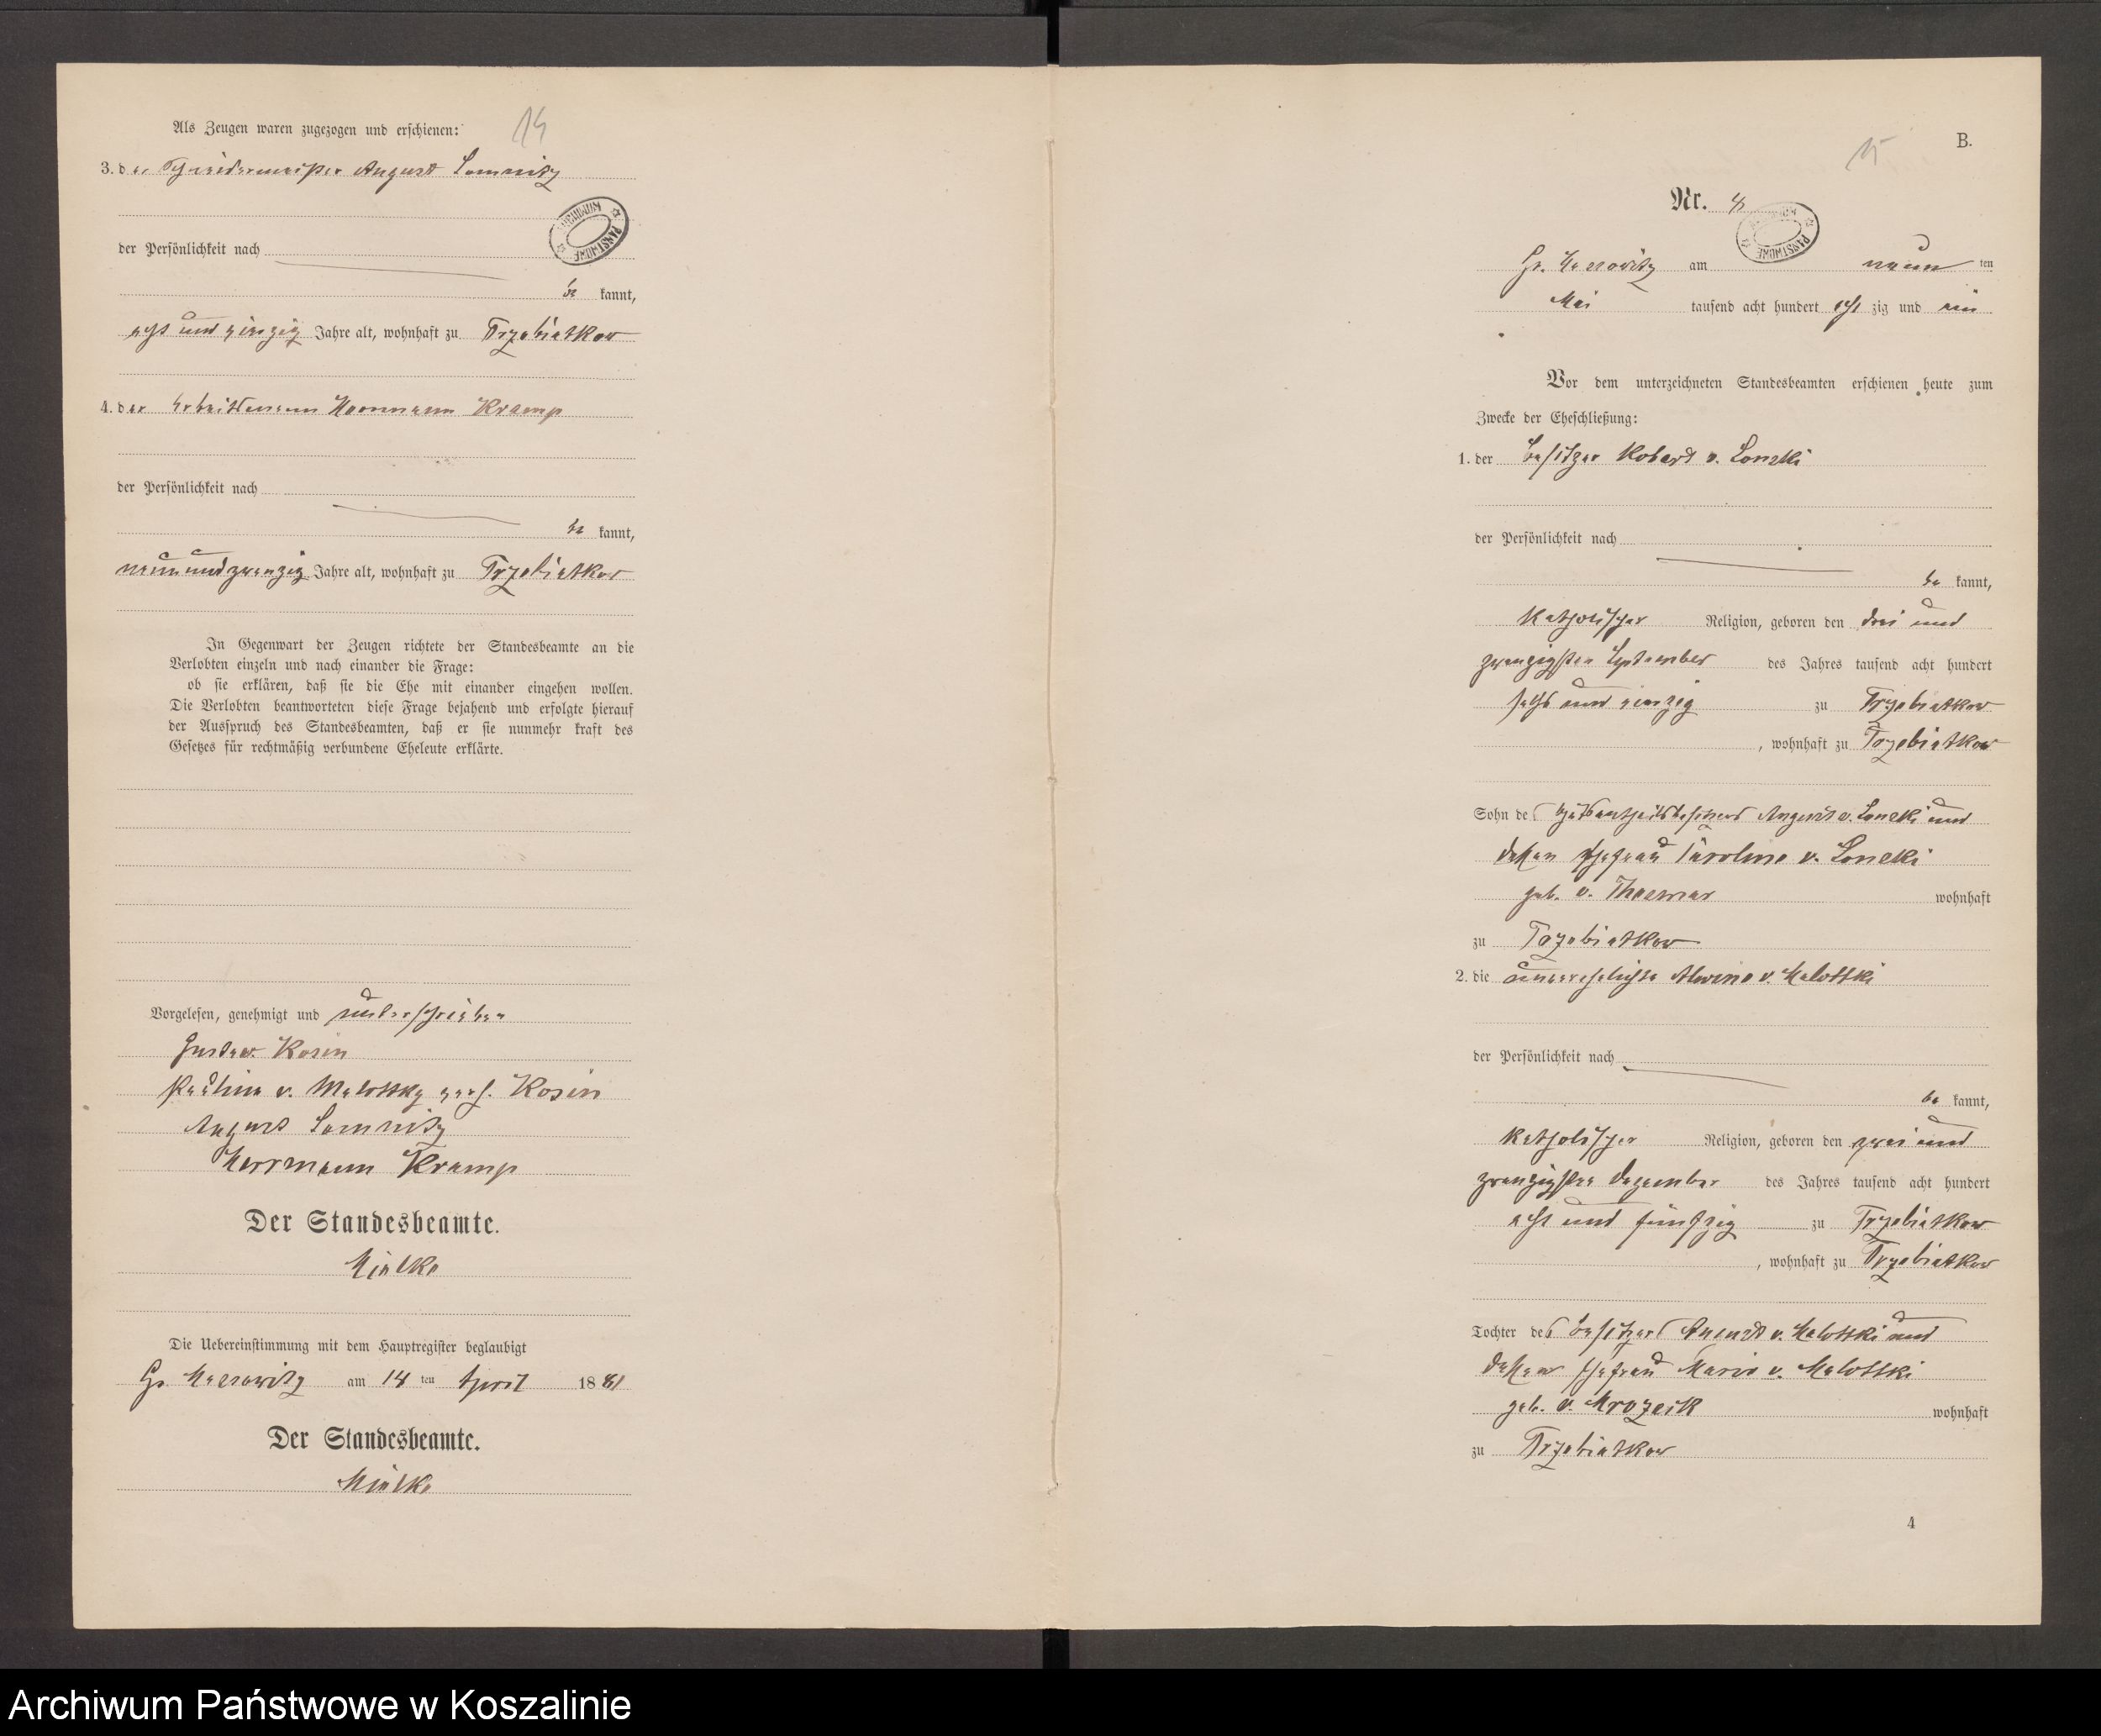 14
Als Zeugen waren zugezogen und erschienen:
3. der Schneidermeister August Lomnitz
der Persönlichkeit nach
be kannt,
acht und vierzig Jahre alt, wohnhaft zu Trzebiatkow
4. der Arbeitsmann Herrmann Kramp
der Persönlichkeit nach
be kannt,
neun und zwanzig Jahre alt, wohnhaft zu Trzebiatkow
In Gegenwart der Zeugen richtete der Standesbeamte an die
Verlobten einzeln und nach einander die Frage:
ob sie erklären, daß sie die Ehe mit einander eingehen wollen.
Die Verlobten beantworteten diese Frage bejahend und erfolgte hierauf
der Ausspruch des Standesbeamten, daß er sie nunmehr kraft des
Gesetzes für rechtmäßig verbundene Eheleute erklärte.
Vorgelesen, genehmigt und unterschrieben
Gustav Kosin
Paulina v. Malottky verh. Kosin
August Lomnitz
Herrmann Kramp
Der Standesbeamte.
Mielke
Die Uebereinstimmung mit dem Hauptregister beglaubigt
Gr. Massowitz am 14 ten April 1881
Der Standesbeamte.
Mielke
ARCHIWUM PAŃSTWOWE
15
B.
Nr. 4
ARCHIWUM PAŃSTWOWE
Gr. Massowitz am neun ten
Mai tausend acht hundert acht zig und ein
Vor dem unterzeichneten Standesbeamten erschienen heute zum
Zwecke der Eheschließung:
1. der Besitzer Robert v.
der Persönlichkeit nach
be kannt,
katholischer Religion, geboren den drei und
zwanzigsten September des Jahres tausend acht hundert
sechs und vierzig zu Trzebiatkow
, wohnhaft zu Trzebiatkow
Sohn des Gutsantheilsbesitzers August v. und
dessen Ehefrau Caroline v.
geb. v. wohnhaft
zu Trzebiatkow
2. die unverehelichte Alwine v. Malottki
der Persönlichkeit nach
be kannt,
katholischer Religion, geboren den zwei und
zwanzigsten Dezember des Jahres tausend acht hundert
acht und fünfzig zu Trzebiatkow
, wohnhaft zu Trzebiatkow
Tochter des Besitzers August v. Malottki und
dessen Ehefrau Marie v. Malottki
geb. v. Mrozeik wohnhaft
zu Trzebiatkow
4
Archiwum Państwowe w Koszalinie